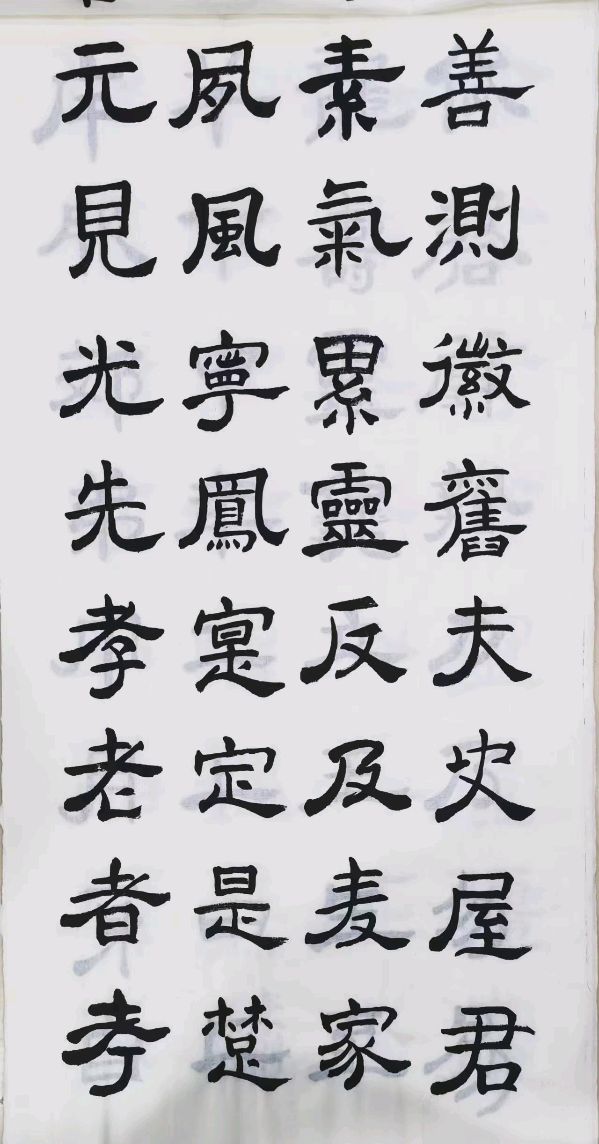 善測徽舊夫屋君
素氣累靈反及麦家
夙風寧鳳寔定是楚
元見光先孝老者考